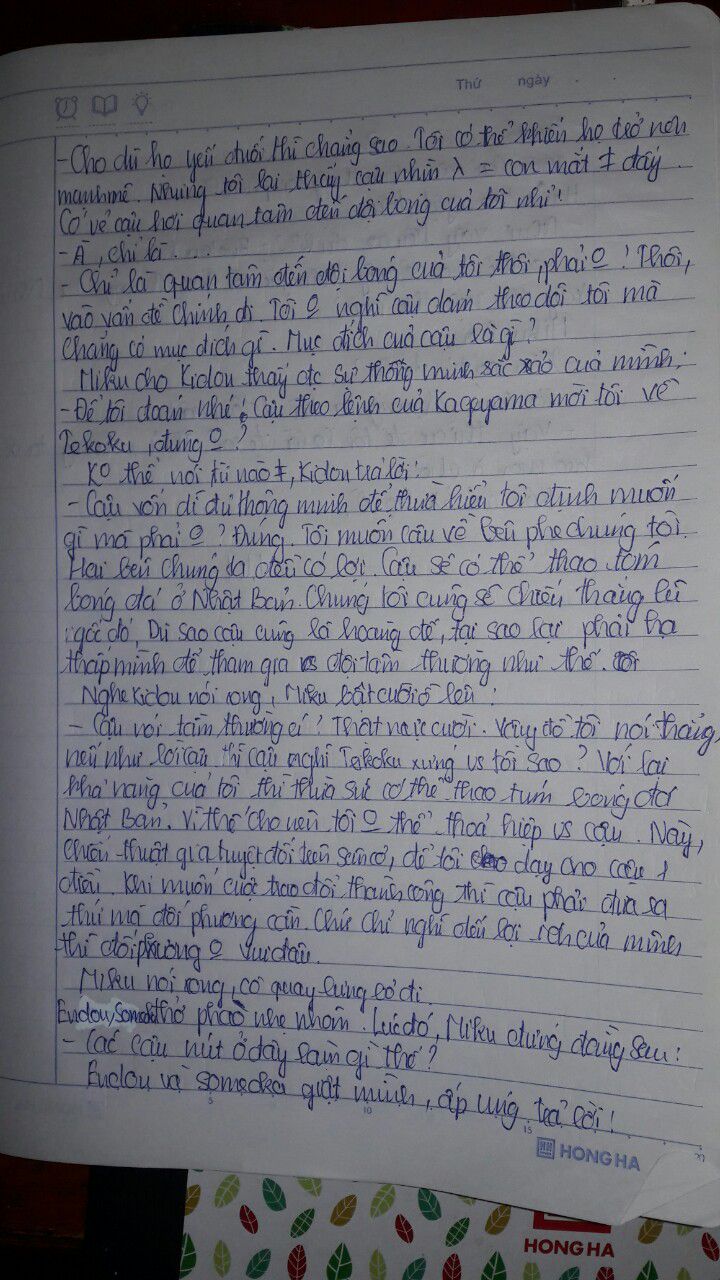 Thứ ngày
- Cho dù họ yếu đuối thì chẳng sao. Tôi có thể khiến họ trở nên
mạnh mẽ. Nhưng tôi lại thấy cậu nhìn λ = con mắt ≠ đấy.
Có vẻ cậu hơi quan tâm đến đội bóng của tôi nhỉ!
- À, chỉ là ...
- Chỉ là quan tâm đến đội bóng của tôi thôi, phải O? Thôi,
vào vấn đề chính đi. Tôi O nghĩ cậu dám theo dõi tôi mà
chẳng có mục đích gì. Mục đích của cậu là gì?
Miku cho Kidou thấy đc sự thông minh sắc xảo của mình:
- Để tôi đoán nhé! Cậu theo lệnh của Kageyama mời tôi về
Teikoku, đúng O?
Ko thể nói từ nào ≠, Kidou trả lời:
- Cậu vốn dĩ đủ thông minh để thừa hiểu tôi định muốn
gì mà phải O? Đúng. Tôi muốn cậu về bên phe chúng tôi.
Hai bên chúng ta đều có lợi. Cậu sẽ có thể thao tóm
bóng đá ở Nhật Bản. Chúng tôi cũng sẽ chiến thắng lũ
ngốc đó. Dù sao cậu cũng là hoàng đế, tại sao lại phải hạ
thấp mình để tham gia vs đội tầm thường như thế.
Nghe Kidou nói xong, Miku bật cười ồ lên:
- Cậu nói tầm thường cí? Thật nực cười. Vậy để tôi nói thẳng,
nếu như lời cậu thì cậu nghĩ Teikoku xứng vs tôi sao? Với lại
khả năng của tôi thì thừa sức có thể thao túm bóng đá
Nhật Bản. Vì thế cho nên tôi O thể thoả hiệp vs cậu. Này,
chiến thuật gia tuyệt đối trên sân cơ, để tôi dạy cho cậu 1
điều. Khi muốn cuộc trao đổi thành công thì cậu phải đưa ra
thứ mà đối phương cần. Chứ chỉ nghĩ đến lợi ích của mình
thì đối phương O vui đâu.
Miku nói xong, cô quay lưng bỏ đi.
Endou, Someoka thở phào nhẹ nhõm. Lúc đó, Miku đứng đằng sau:
- Các cậu núp ở đây làm gì thế?
Endou và Someoka giật mình, ấp úng trả lời:
5 10 15 20
HONG HA
HONG HA